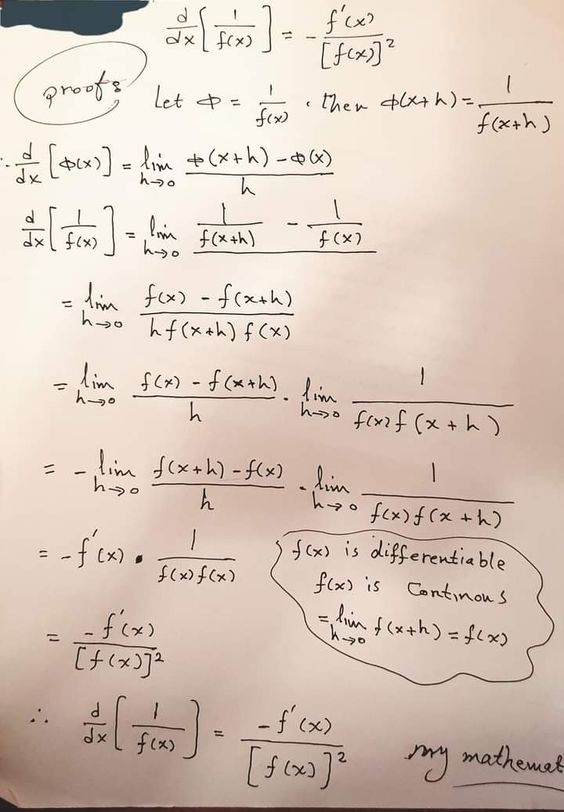 d/dx [1/f(x)] = - f'(x)/[f(x)]²
proofs
Let Φ = 1/f(x) , then Φ(x+h) = 1/f(x+h)
∴ d/dx [Φ(x)] = lim h→0 Φ(x+h) - Φ(x)/h
d/dx [1/f(x)] = lim h→0 1/f(x+h) - 1/f(x)
= lim h→0 f(x) - f(x+h)/h f(x+h) f(x)
= lim h→0 f(x) - f(x+h)/h · lim h→0 1/f(x) f(x+h)
= - lim h→0 f(x+h) - f(x)/h · lim h→0 1/f(x) f(x+h)
= -f'(x) · 1/f(x) f(x)
f(x) is differentiable
f(x) is Continous
= lim h→0 f(x+h) = f(x)
= -f'(x)/[f(x)]²
∴ d/dx [1/f(x)] = -f'(x)/[f(x)]²
my mathemat